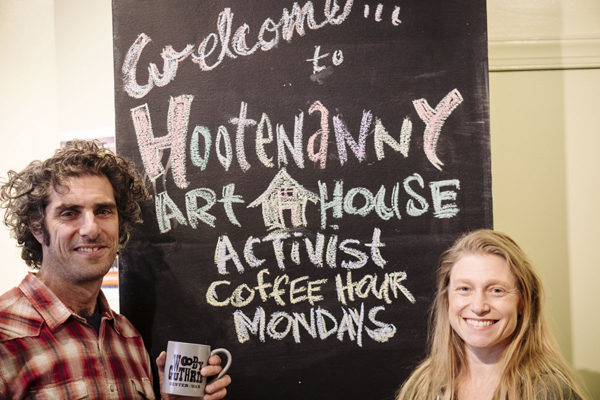 Welcome...
to
HOOTENANNY
ART HOUSE
ACTIVIST
COFFEE HOUR
MONDAYS
WOODY
GUTHRIE
CENTER